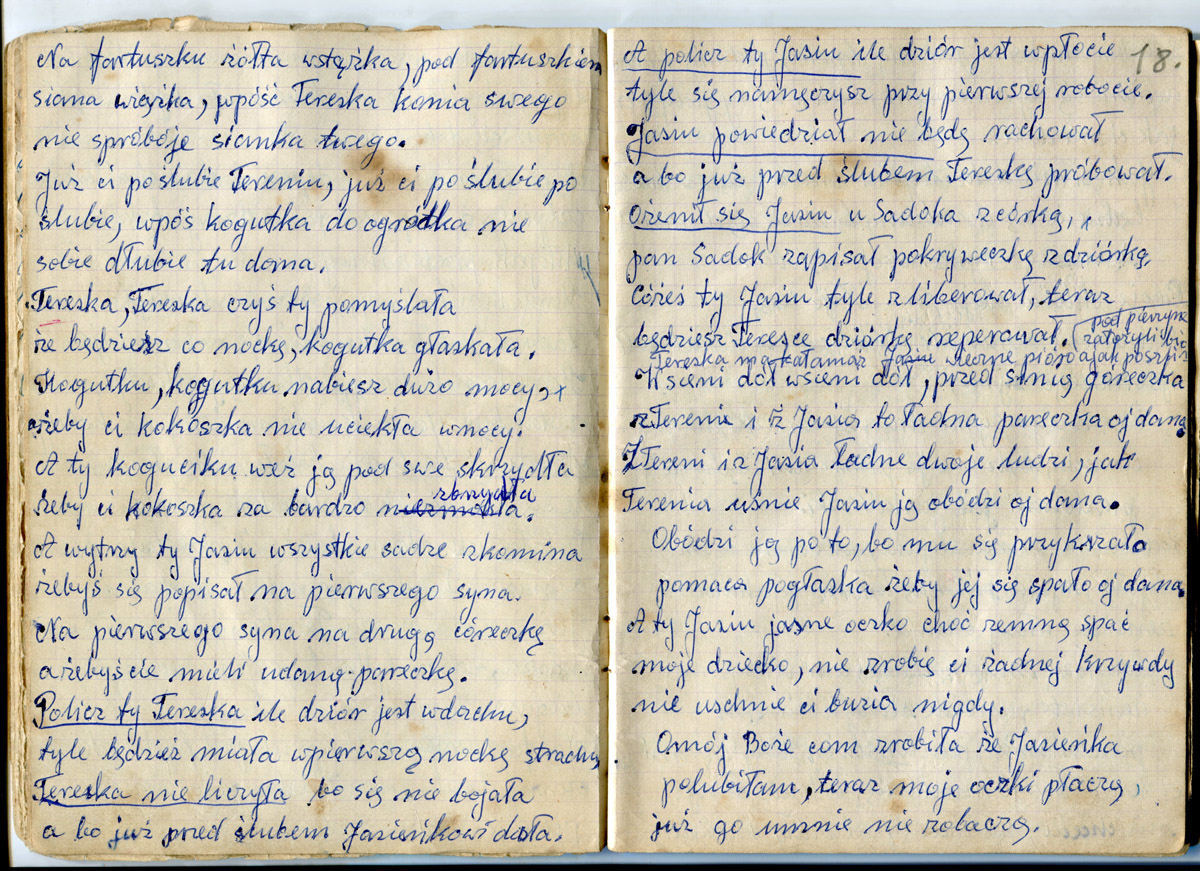 Na fartuszku żółta wstążka, pod fartuszkiem
siana wiązka, wpóść Tereska konia swego
nie spróbóje sianka twego.
Już ci poślubie Tereniu, już ci po ślubie po
ślubie, wpóś kogutka do ogródka nie
sobie dłubie tu dana.
Tereska, Tereska czyś ty pomyślała
że będziesz co nockę, kogutka głaskała.
Kogutku, kogutku nabiesz dużo mocy,
żeby ci kokoszka nie uciekła wnocy.
A ty koguciku weź ją pod swe skrzydła
żeby ci kokoszka za bardzo zbrzydła.
A wytrzy ty Jasiu wszystkie sadze zkomina
żebyś się popisał na pierwszego syna.
Na pierwszego syna na drugą córeczkę
ażebyście mieli udaną pareczkę.
Policz ty Tereska ile dziór jest wdachu,
tyle będzież miała wpierwszą nockę strachu,
Tereska nie liczyła bo się nie bojała
a bo już przed ślubem Jasieńkowi dała.
18.
A policz ty Jasiu ile dziór jest wpłocie
tyle się namęczysz przy pierwszej robocie.
Jasiu powiedział nie będę rachował
a bo już przed ślubem Tereskę próbował.
Ożenił się Jasiu u Sadoka zcórką,
pan Sadok zapisał pokryweczkę zdziórką,
Cóżeś ty Jasiu tyle zliberował, teraz
będziesz Teresce dziórkę reperował.
pod pierzyne
założyli
Tereska ma kałamaż Jasiu wieczne pióro ajak
Wsieni dół wsieni dół, przed sinią góreczka
zTerenia i z Jasia to ładna pareczka oj dana.
ZTereni i z Jasia ładne dwoje ludzi, jak
Terenia uśnie Jasiu ją obódzi oj dana.
Obódzi ją po to, bo mu się przykrzało
pomaca pogłaszka żeby jej się spało oj dana
A ty Jasiu jasne oczko choć zemną spać
moje dziecko, nie zrobię ci żadnej krzywdy
nie uschnie ci buzia nigdy.
Omój Boże com zrobiła że Jasieńka
polubiłam, teraz moje oczki płaczą,
już go umnie nie zobaczą.